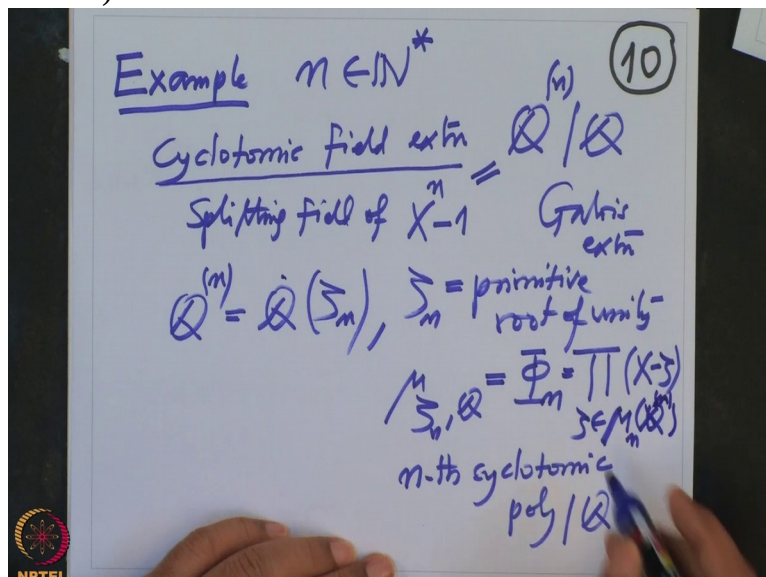 Example n ∈ ℕ*
(10)
Cyclotomic field extn = ℚ^(n) | ℚ
Splitting field of X^n - 1
Galois extn
ℚ^(n) = ℚ(ζ_n), ζ_n = primitive root of unity
μ_{ζ_n, ℚ} = Φ_n = ∏ (X-ζ)
ζ ∈ μ_n(ℚ^(n))
n-th cyclotomic
poly | ℚ
NPTEL